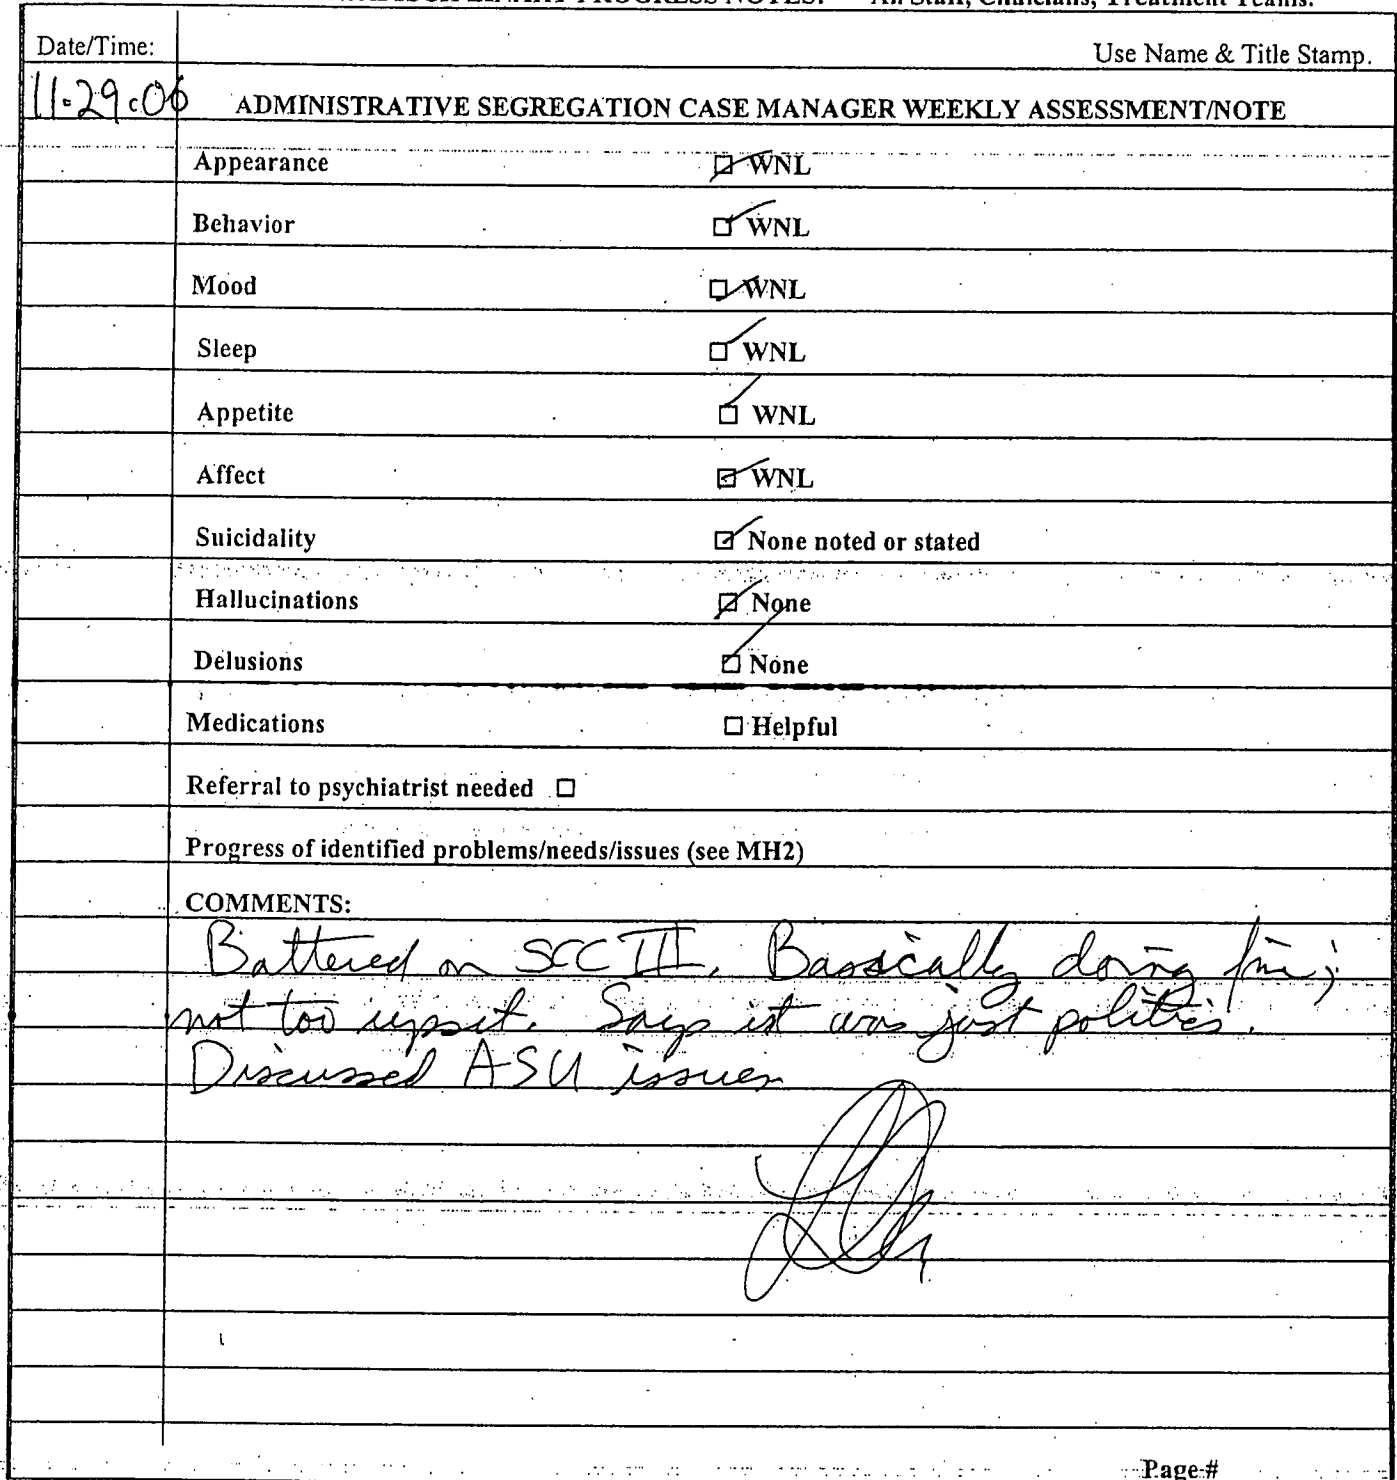 PROGRESS NOTES: All Staff, Clinicians, Treatment Teams.
Date/Time: Use Name & Title Stamp.
11-29-06 ADMINISTRATIVE SEGREGATION CASE MANAGER WEEKLY ASSESSMENT/NOTE
Appearance ☑ WNL
Behavior ☑ WNL
Mood ☑ WNL
Sleep ☑ WNL
Appetite ☑ WNL
Affect ☑ WNL
Suicidality ☑ None noted or stated
Hallucinations ☑ None
Delusions ☑ None
Medications ☐ Helpful
Referral to psychiatrist needed ☐
Progress of identified problems/needs/issues (see MH2)
COMMENTS:
Battered on SCC III. Basically doing fine;
not too upset. Says it was just politics.
Discussed ASU issues
Page #